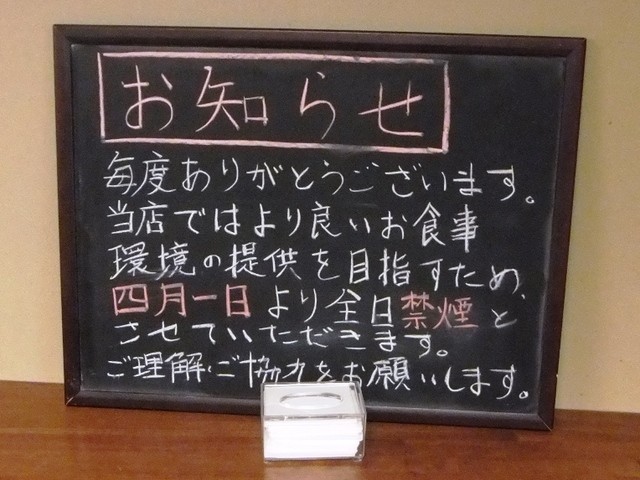 お知らせ
毎度ありがとうございます。
当店ではより良いお食事
環境の提供を目指すため、
四月一日より全日禁煙と
させていただきます。
ご理解・ご協力をお願いします。